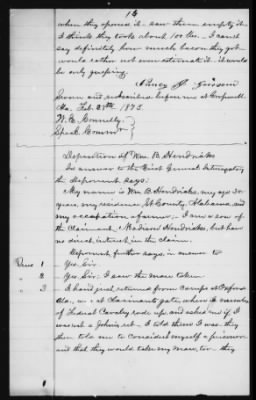 16
when they opened it - saw them empty it
I think they took about 100 lbs. - I can't
say definitely how much bacon they got
would rather not now estimate it. it would
be only guessing.
Sworn and subscribed before me at
Ala. Feb. 25th 1873.
W. E. Connelly
Specl. Commr
Deposition of Wm. B. Hendricks
In answer to the First General Interrogatory
the Deponent says:
My name is Wm B. Hendricks, my age 30
years, my residence, County, Alabama and
my occupation a farmer; - I am a son of
the Claimant, Madison Hendricks, but have
no direct interest in the claim.
Deponent further says, in answer to
1 - Yes Sir
2 - Yes Sir. I saw the mare taken
3 - I had just returned from camps at Oxford
Ala. at Claimants gate when a number
of Federal Cavalry rode up and asked me if I
was not a Johnny reb. - I told them I was. they
then told me to consider myself a prisoner
and that they would take my mare, too - they